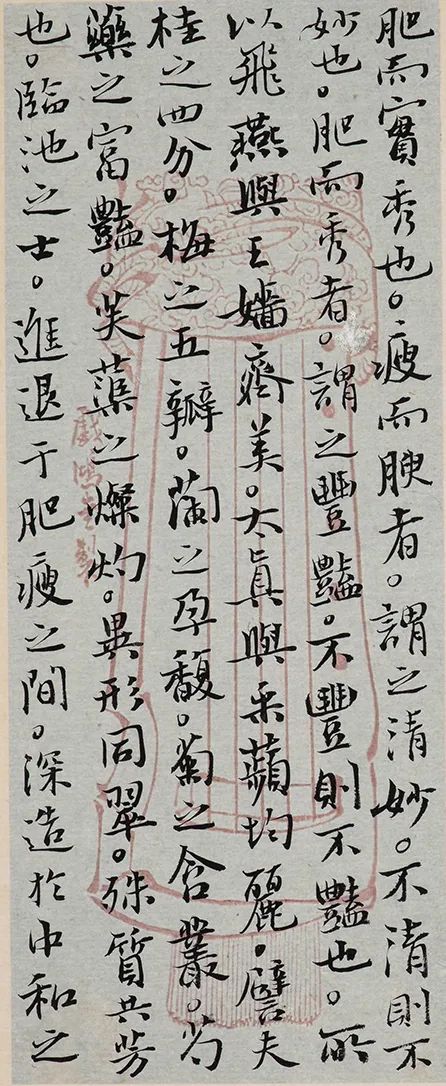 肥而實秀也。瘦而腴者。謂之清妙。不清則不
妙也。肥而秀者。謂之豐豔。不豐則不豔也。所
以飛燕與王嬙齊美。太真與采蘋均麗。譬夫
桂之四分。梅之五瓣。蘭之孕馥。菊之含叢。芍
藥之富豔。芙蕖之燦灼。異形同翠。殊質共芳
也。臨池之士。進退于肥瘦之間。深造於中和之
戲鴻堂製